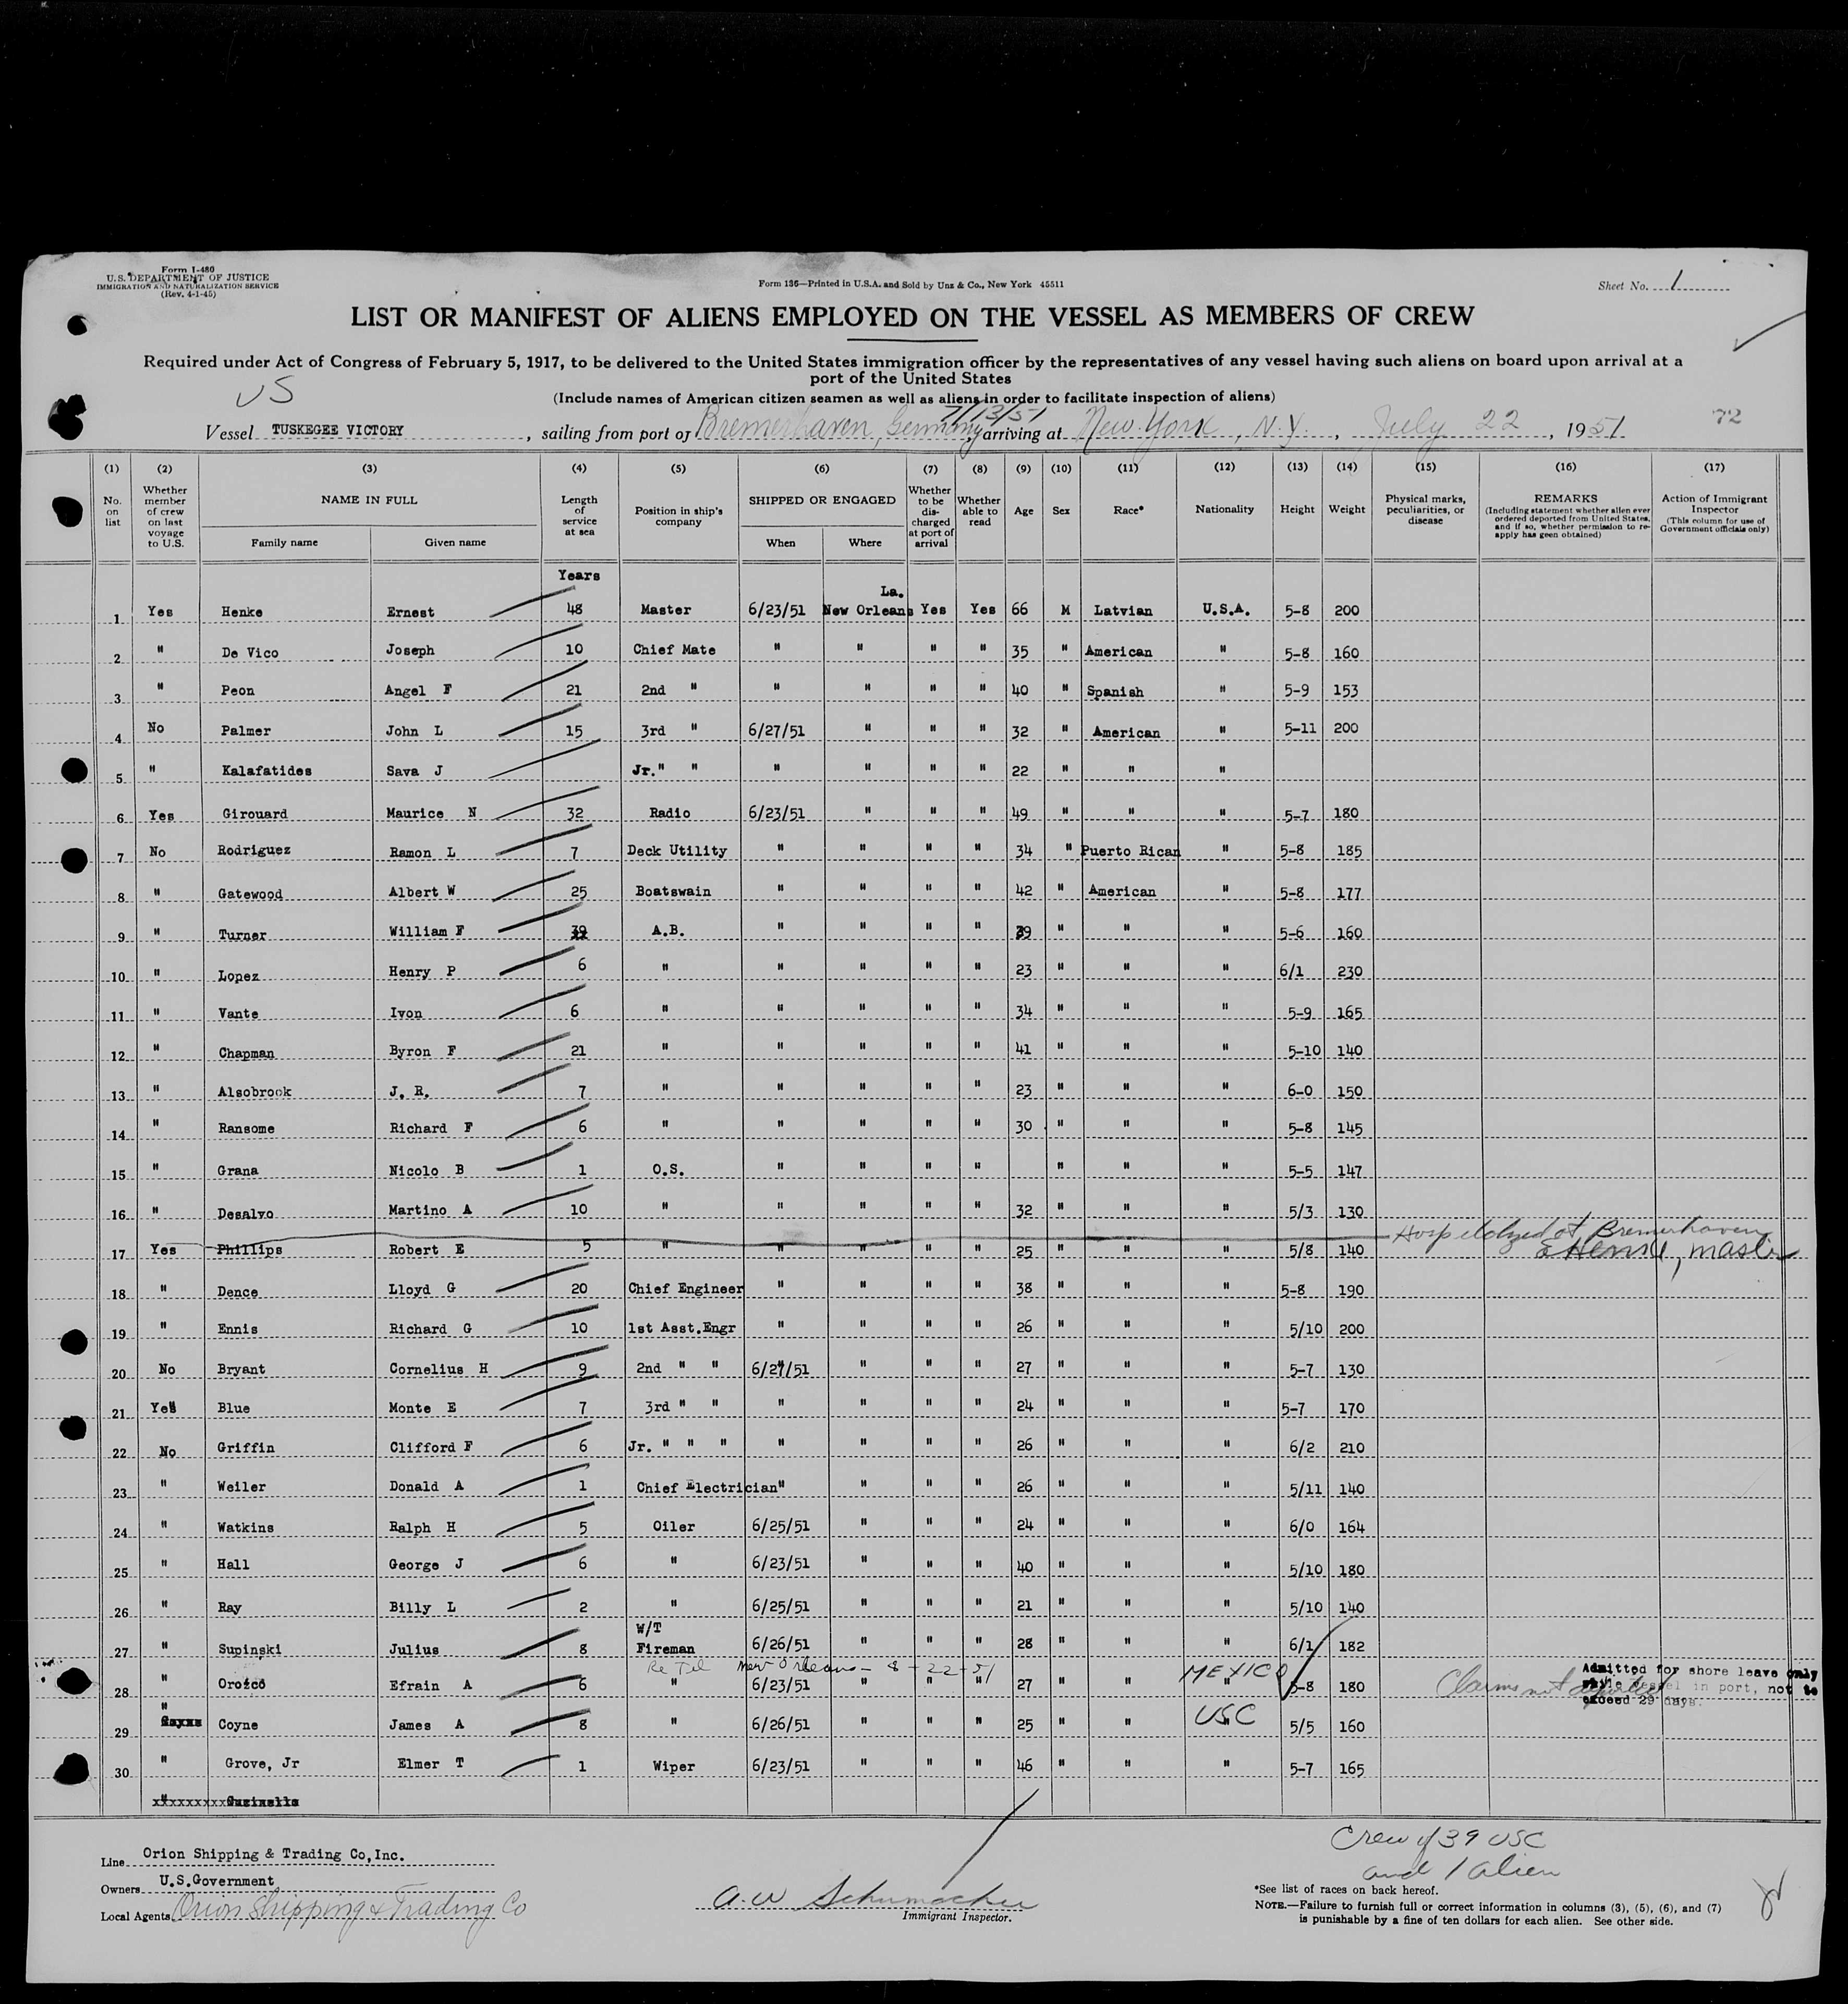 Form I-480
U. S. DEPARTMENT OF JUSTICE
IMMIGRATION AND NATURALIZATION SERVICE
(Rev. 4-1-45)
Form 136—Printed in U.S.A. and Sold by Unz & Co., New York 45511
Sheet No. 1
LIST OR MANIFEST OF ALIENS EMPLOYED ON THE VESSEL AS MEMBERS OF CREW
Required under Act of Congress of February 5, 1917, to be delivered to the United States immigration officer by the representatives of any vessel having such aliens on board upon arrival at a
port of the United States
US
(Include names of American citizen seamen as well as aliens in order to facilitate inspection of aliens)
7/13/51
Vessel TUSKEGEE VICTORY, sailing from port of Bremerhaven, Germany, arriving at New York, N.Y., July 22, 1951
72
(1) (2) (3) (4) (5) (6) (7) (8) (9) (10) (11) (12) (13) (14) (15) (16) (17)
No. on list
Whether member of crew on last voyage to U.S.
NAME IN FULL
Family name
Given name
Length of service at sea
Position in ship's company
SHIPPED OR ENGAGED
When
Where
Whether to be discharged at port of arrival
Whether able to read
Age
Sex
Race*
Nationality
Height
Weight
Physical marks, peculiarities, or disease
REMARKS
(Including statement whether alien ever ordered deported from United States, and if so, whether permission to reapply has geen obtained)
Action of Immigrant Inspector
(This column for use of Government officials only)
Years
La.
1 Yes Henke Ernest 48 Master 6/23/51 New Orleans Yes Yes 66 M Latvian U.S.A. 5-8 200
2 " De Vico Joseph 10 Chief Mate " " " " 35 " American " 5-8 160
3 " Peon Angel F 21 2nd " " " " " 40 " Spanish " 5-9 153
4 No Palmer John L 15 3rd " 6/27/51 " " " 32 " American " 5-11 200
5 " Kalafatides Sava J Jr." " " " " " 22 " " "
6 Yes Girouard Maurice N 32 Radio 6/23/51 " " " 49 " " " 5-7 180
7 No Rodriguez Ramon L 7 Deck Utility " " " " 34 " Puerto Rican " 5-8 185
8 " Gatewood Albert W 25 Boatswain " " " " 42 " American " 5-8 177
9 " Turner William F 39 A.B. " " " " 39 " " " 5-6 160
10 " Lopez Henry P 6 " " " " " 23 " " " 6/1 230
11 " Vante Ivon 6 " " " " " 34 " " " 5-9 165
12 " Chapman Byron F 21 " " " " " 41 " " " 5-10 140
13 " Alsobrook J. R. 7 " " " " " 23 " " " 6-0 150
14 " Ransome Richard F 6 " " " " " 30 " " " 5-8 145
15 " Grana Nicolo B 1 O.S. " " " " " " " 5-5 147
16 " Desalvo Martino A 10 " " " " " 32 " " " 5/3 130
17 Yes Phillips Robert E 5 " " " " " 25 " " " 5/8 140 Hospitalized at Bremerhaven
E Henke, master
18 " Dence Lloyd G 20 Chief Engineer " " " " 38 " " " 5-8 190
19 " Ennis Richard G 10 1st Asst.Engr " " " " 26 " " " 5/10 200
20 No Bryant Cornelius H 9 2nd " " 6/27/51 " " " 27 " " " 5-7 130
21 Yes Blue Monte E 7 3rd " " " " " " 24 " " " 5-7 170
22 No Griffin Clifford F 6 Jr. " " " " " " " 26 " " " 6/2 210
23 " Weiler Donald A 1 Chief Electrician" " " " 26 " " " 5/11 140
24 " Watkins Ralph H 5 Oiler 6/25/51 " " " 24 " " " 6/0 164
25 " Hall George J 6 " 6/23/51 " " " 40 " " " 5/10 180
26 " Ray Billy L 2 " 6/25/51 " " " 21 " " " 5/10 140
W/T
27 " Supinski Julius 8 Fireman 6/26/51 " " " 28 " " " 6/1 182
Re Tel New Orleans - 8-22-51
28 " Orozco Efrain A 6 " 6/23/51 " " " 27 " " MEXICO 5-8 180 Claims not deported
Admitted for shore leave only
while vessel in port, not to
exceed 29 days.
29 " Coyne James A 8 " 6/26/51 " " " 25 " " USC 5/5 160
30 " Grove, Jr Elmer T 1 Wiper 6/23/51 " " " 46 " " " 5-7 165
Line Orion Shipping & Trading Co,Inc.
Owners U.S.Government
Local Agents Orion Shipping & Trading Co
A.W Schumacher
Immigrant Inspector.
Crew of 39 USC
and 1 alien
*See list of races on back hereof.
NOTE.—Failure to furnish full or correct information in columns (3), (5), (6), and (7)
is punishable by a fine of ten dollars for each alien. See other side.